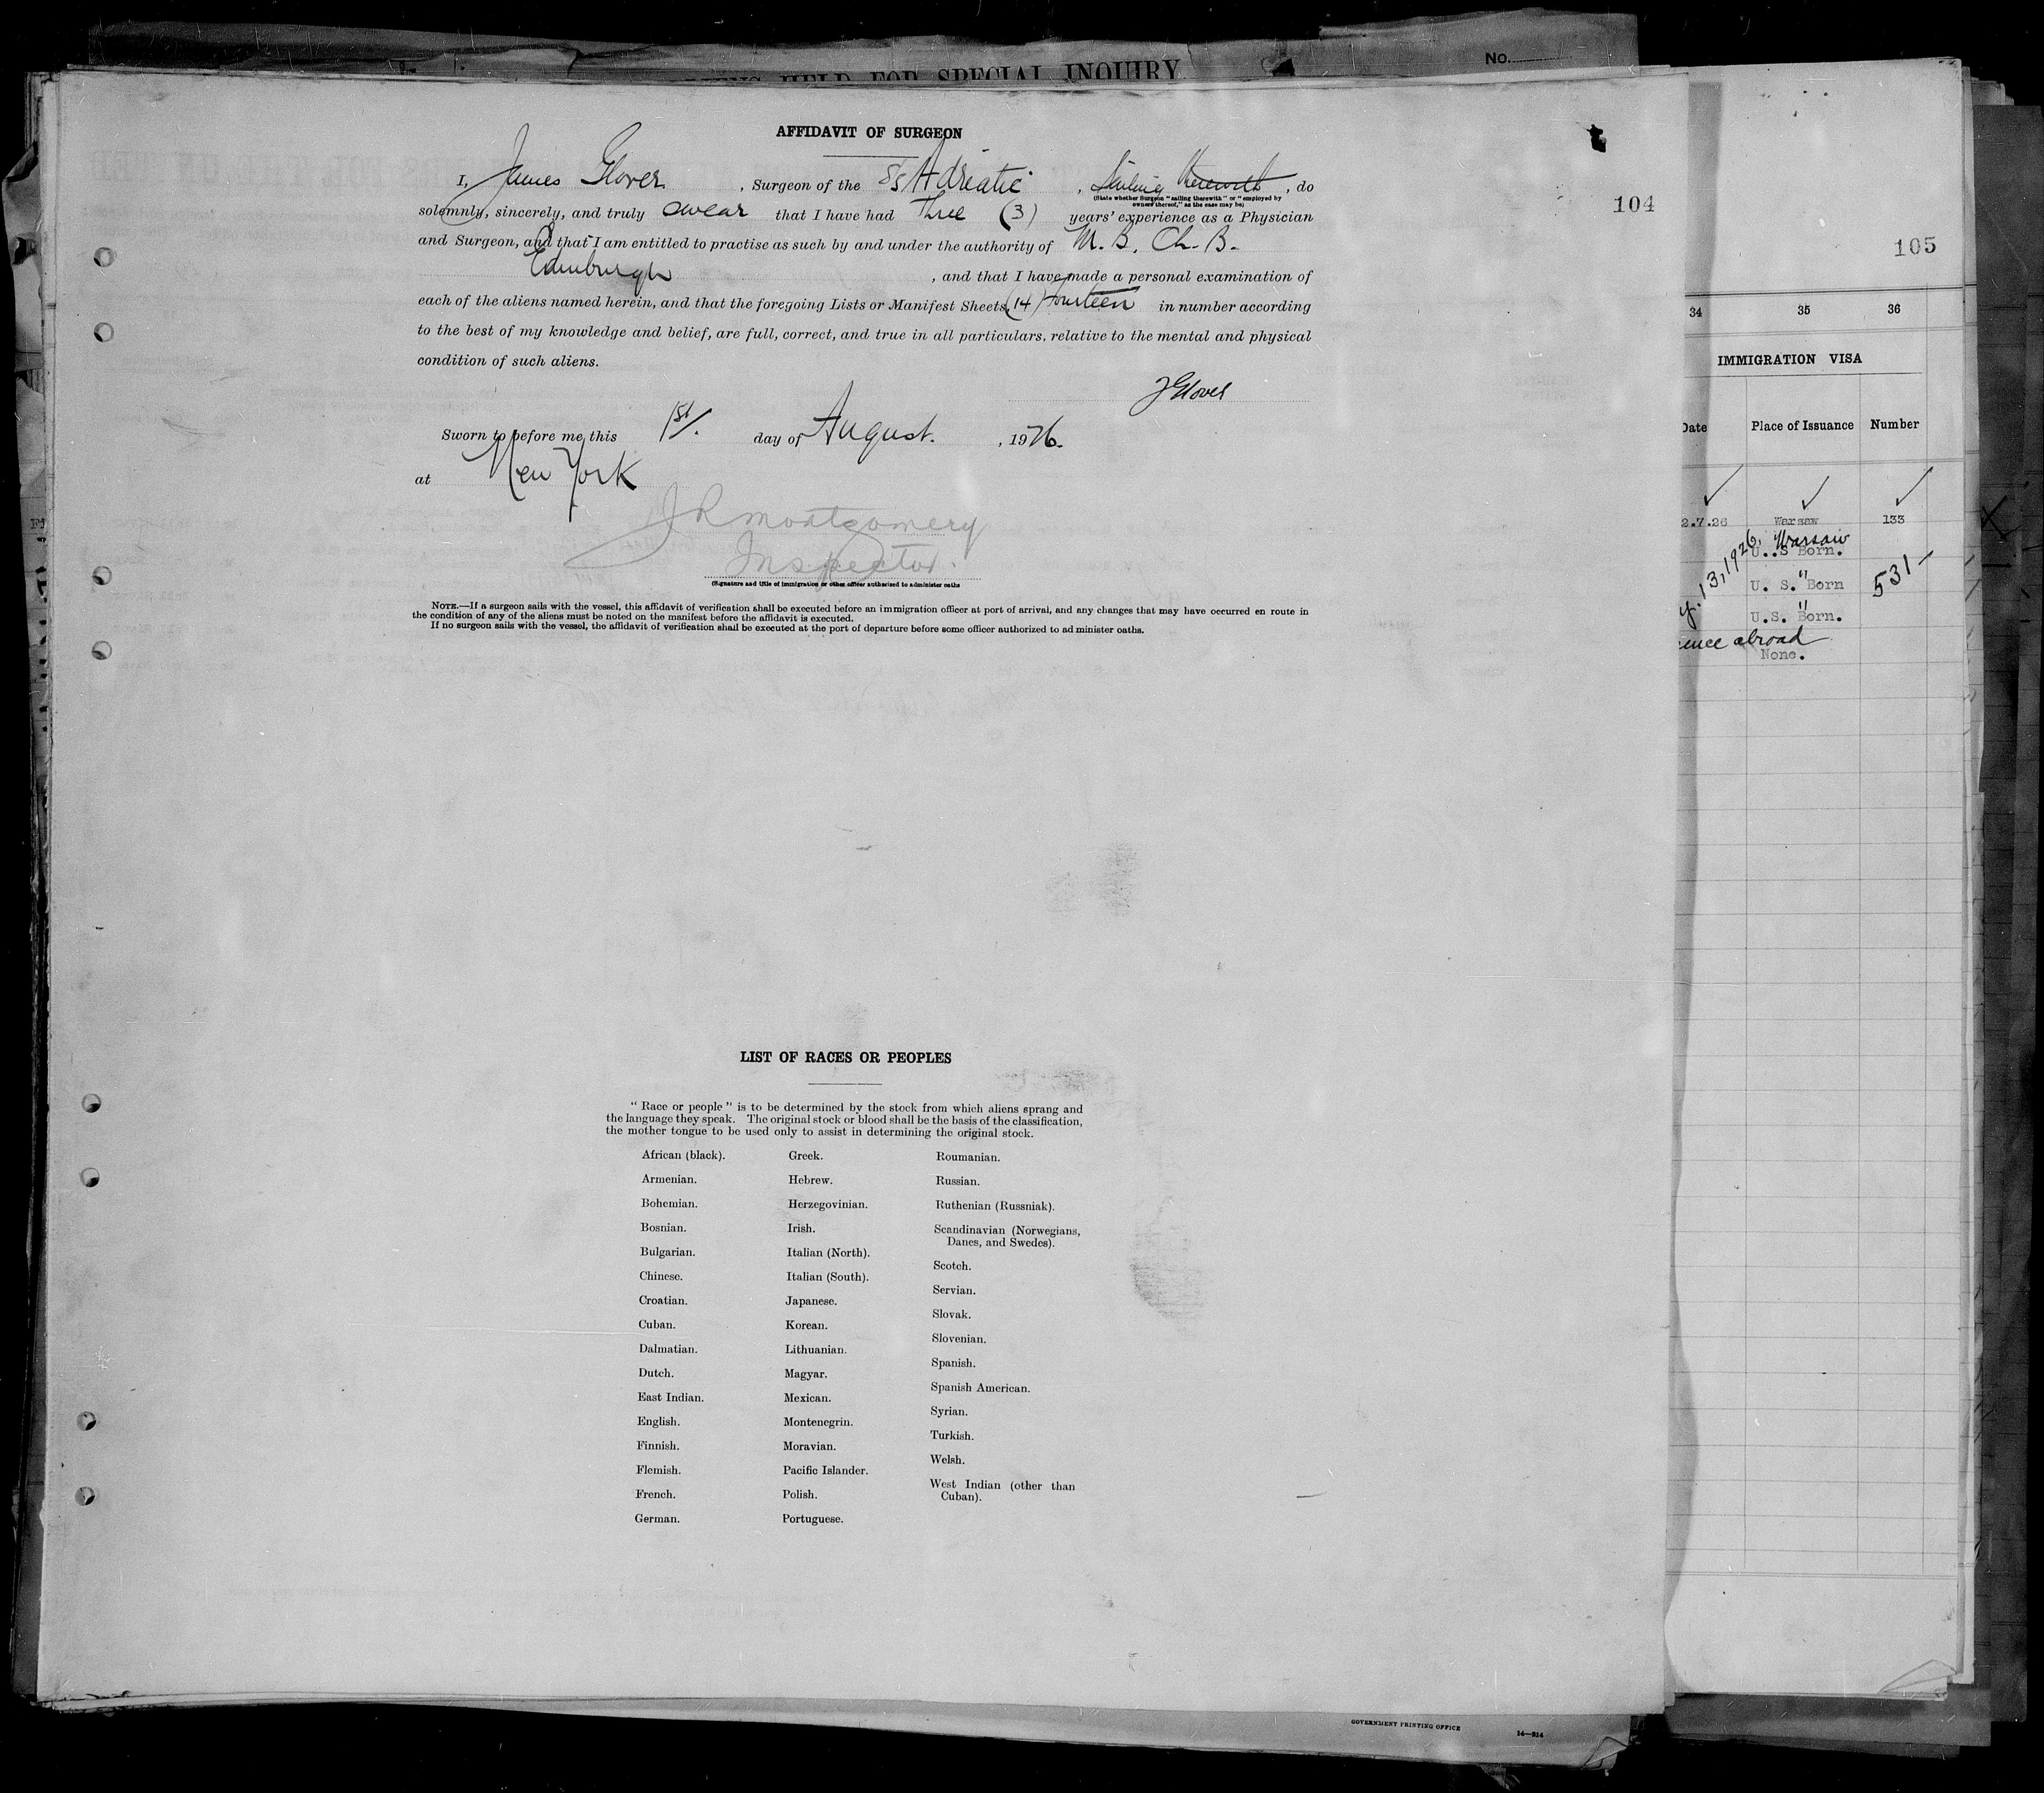 ALIENS HELD FOR SPECIAL INQUIRY
No.
AFFIDAVIT OF SURGEON
104
I, James Glover, Surgeon of the SS Adriatic, Sailing therewith, do
(State whether Surgeon "sailing therewith" or "employed by
owners thereof," as the case may be)
solemnly, sincerely, and truly swear that I have had three (3) years' experience as a Physician
and Surgeon, and that I am entitled to practise as such by and under the authority of M.B. Ch.B.
Edinburgh, and that I have made a personal examination of
each of the aliens named herein, and that the foregoing Lists or Manifest Sheets, (14) fourteen in number according
to the best of my knowledge and belief, are full, correct, and true in all particulars, relative to the mental and physical
condition of such aliens.
J Glover
Sworn to before me this 1st. day of August., 1926.
at New York
JR Montgomery
Inspector.
(Signature and title of immigration or other officer authorized to administer oaths
NOTE.—If a surgeon sails with the vessel, this affidavit of verification shall be executed before an immigration officer at port of arrival, and any changes that may have occurred en route in
the condition of any of the aliens must be noted on the manifest before the affidavit is executed.
If no surgeon sails with the vessel, the affidavit of verification shall be executed at the port of departure before some officer authorized to administer oaths.
LIST OF RACES OR PEOPLES
"Race or people" is to be determined by the stock from which aliens sprang and
the language they speak. The original stock or blood shall be the basis of the classification,
the mother tongue to be used only to assist in determining the original stock.
African (black).
Armenian.
Bohemian.
Bosnian.
Bulgarian.
Chinese.
Croatian.
Cuban.
Dalmatian.
Dutch.
East Indian.
English.
Finnish.
Flemish.
French.
German.
Greek.
Hebrew.
Herzegovinian.
Irish.
Italian (North).
Italian (South).
Japanese.
Korean.
Lithuanian.
Magyar.
Mexican.
Montenegrin.
Moravian.
Pacific Islander.
Polish.
Portuguese.
Roumanian.
Russian.
Ruthenian (Russniak).
Scandinavian (Norwegians,
Danes, and Swedes).
Scotch.
Servian.
Slovak.
Slovenian.
Spanish.
Spanish American.
Syrian.
Turkish.
Welsh.
West Indian (other than
Cuban).
105
34 35 36
IMMIGRATION VISA
Date Place of Issuance Number
2.7.26 Warsaw 133
13, 1926, Warsaw
U.S Born.
" 531
U. S. Born
"
U.S. Born.
abroad
None.
GOVERNMENT PRINTING OFFICE 14—914